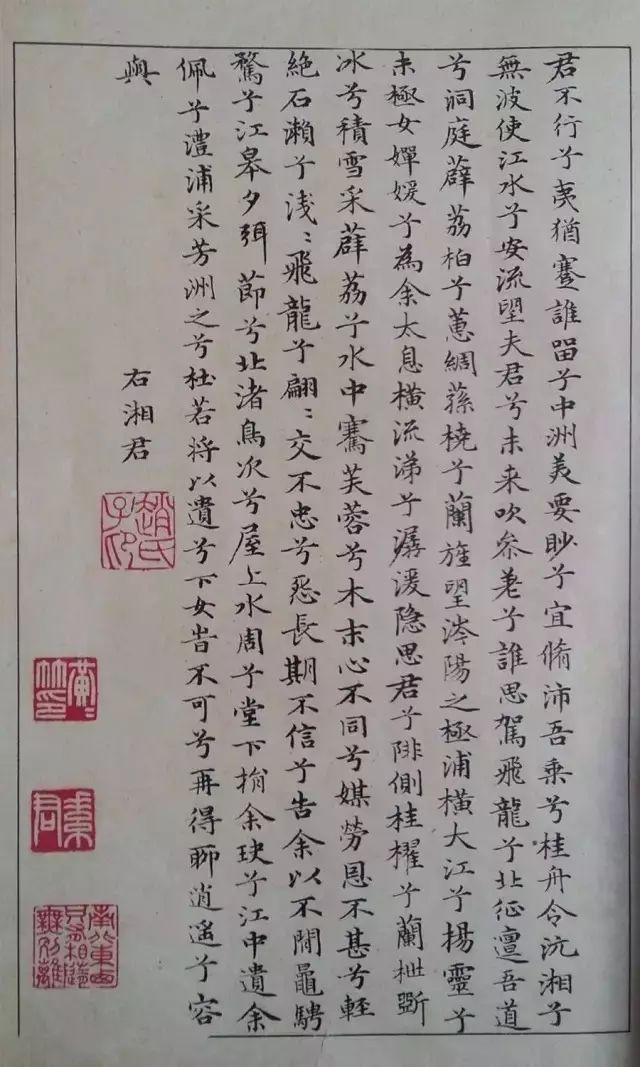 君不行兮夷猶蹇誰畱兮中洲美要眇兮宜脩沛吾乗兮桂舟令沅湘兮
無波使江水兮安流望夫君兮未来吹叅差兮誰思駕飛龍兮北征邅吾道
兮洞庭薜荔柏兮蕙綢蓀橈兮蘭旌望涔陽之極浦橫大江兮楊靈兮
未極女嬋媛兮為余太息橫流涕兮潺湲隐思君兮陫側桂櫂兮蘭枻斲
冰兮積雪采薜荔兮水中騫芙蓉兮木末心不同兮媒勞恩不甚兮輕
絶石瀨兮浅〻飛龍兮翩〻交不忠兮怨長期不信兮告余以不閒鼂騁
騖兮江皋夕弭節兮北渚鳥次兮屋上水周兮堂下捐余玦兮江中遺余
佩兮澧浦采芳洲之兮杜若将以遺兮下女旹不可兮再得聊逍遙兮容
與
右湘君
趙氏子印